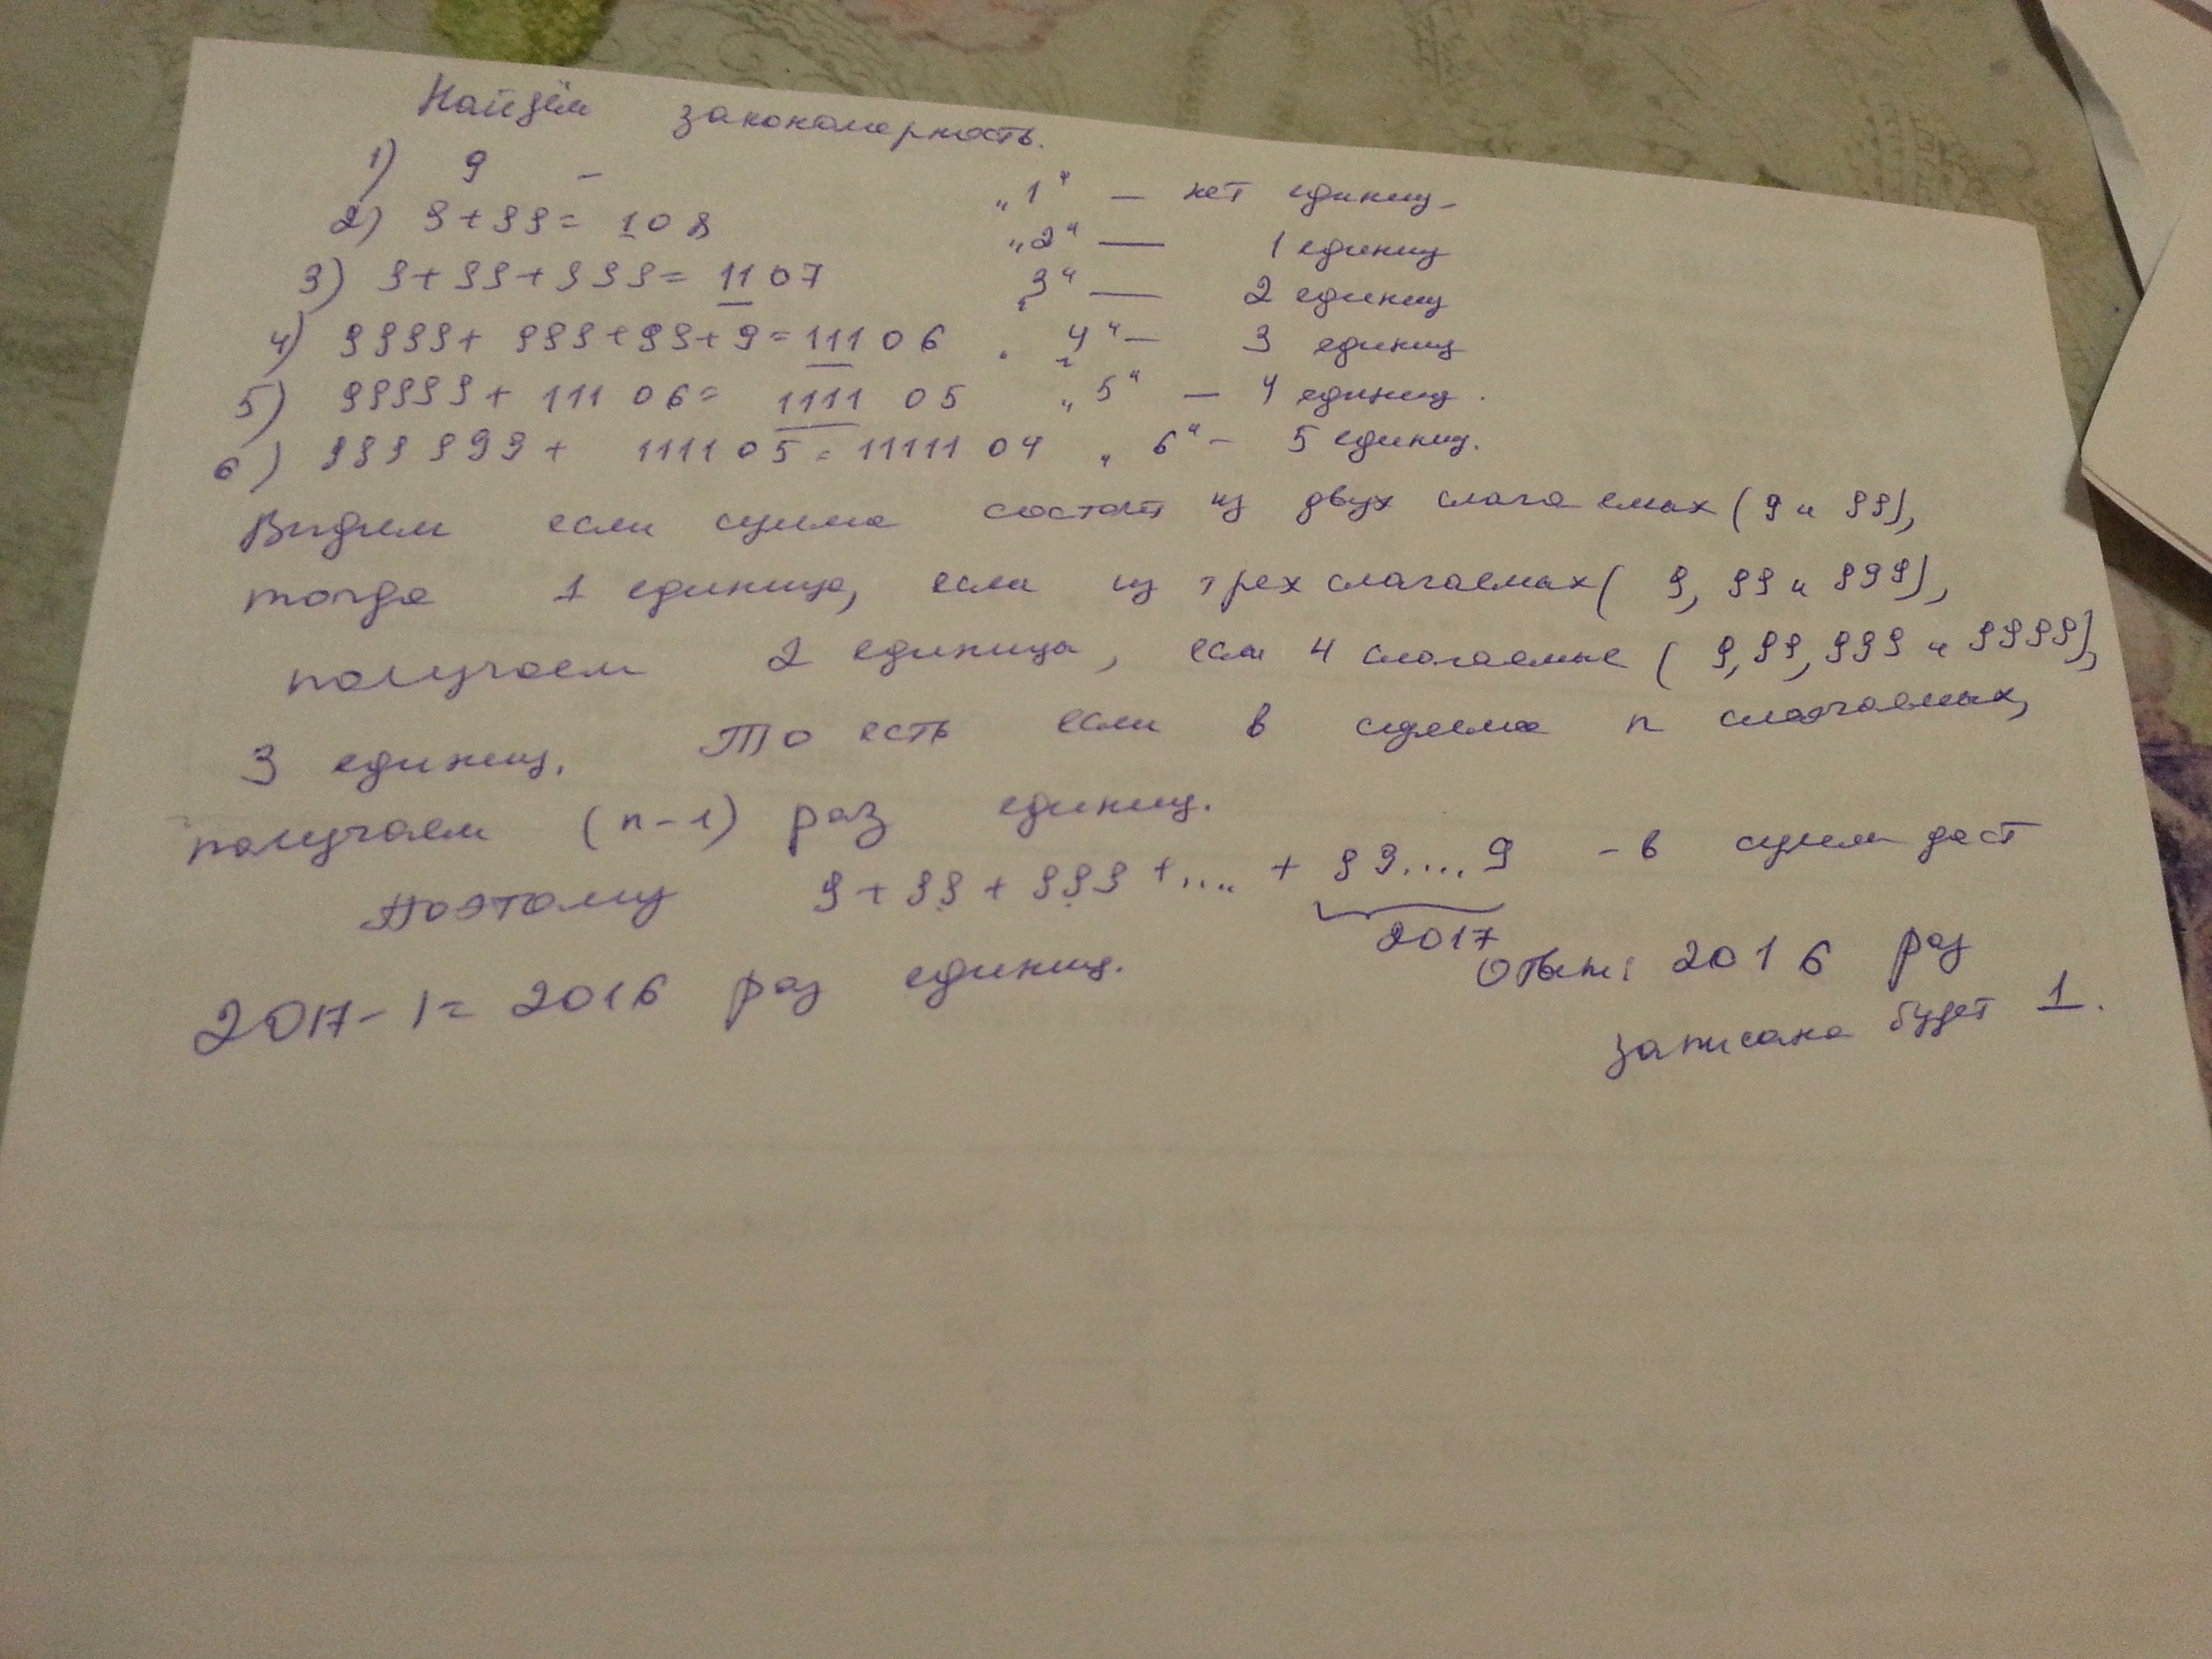 Найдём закономерность.
1) 9 — „1" — нет единиц
2) 9+99= 108 „2" — 1 единиц
3) 9+99+999= 1107 3" — 2 единиц
4) 9999+ 999+99+9= 11106 4" — 3 единиц
5) 99999+ 11106= 111105 „5" — 4 единиц.
6) 999999+ 111105= 1111104 „6" — 5 единиц.
Видим если сумма состоит из двух слагаемых (9 и 99),
тогда 1 единица, если из трех слагаемых ( 9, 99 и 999),
получаем 2 единицы, если 4 слагаемые ( 9,99,999 и 9999),
3 единиц. То есть если в сумме n слагаемых,
получаем (n-1) раз единиц.
Поэтому 9+99+999+....+ 99....9 - в сумме даст
2017
2017-1= 2016 раз единиц.
Ответ: 2016 раз
записана будет 1.